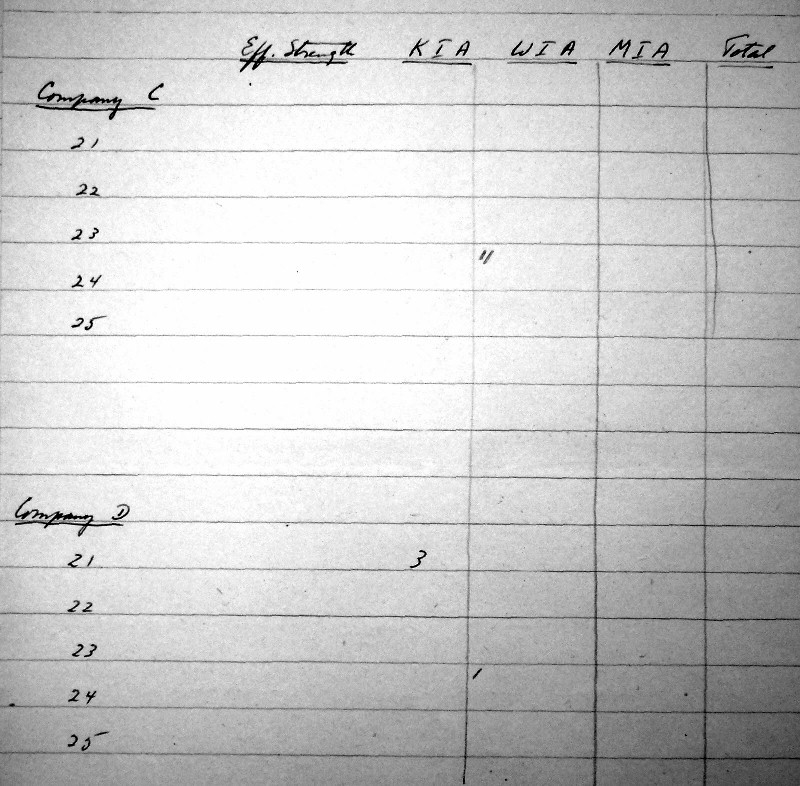 Eff. Strength KIA WIA MIA Total
Company C
21
22
23
"
24
25
Company D
21 3
22
23
24
25